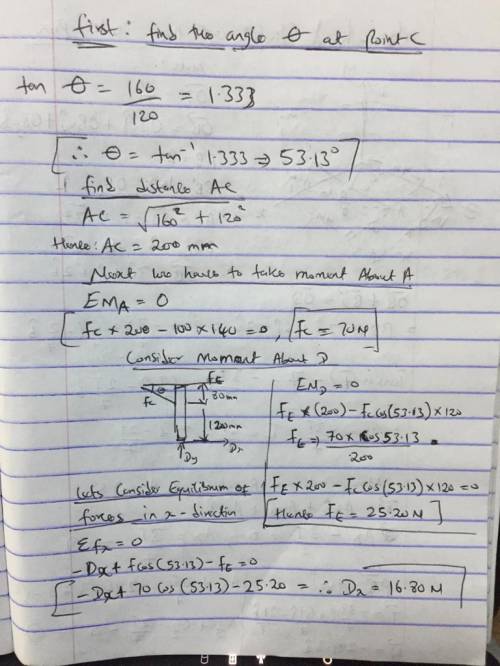 first: find the angle θ at point C
tan θ = 160/120 = 1.333
∴ θ = tan⁻¹ 1.333 => 53.13°
find distance AC
AC = √160² + 120²
Hence: AC = 200 mm
Next we have to take moment About A
EMA = 0
fc × 200 - 100 × 140 = 0, fc = 70N
Consider Moment About D
θ
fE
fc
80mm
120mm
Dy
Dx
EMD = 0
fE × (200) - fc cos(53.13) × 120
fE => 70 × cos 53.13 / 200
fE × 200 - fc cos(53.13) × 120 = 0
Hence FE = 25.20 N
Lets Consider Equilibrium of
forces in x-direction
Σfx = 0
-Dx + fcos(53.13) - fE = 0
-Dx + 70 cos(53.13) - 25.20 = ∴ Dx = 16.80 N